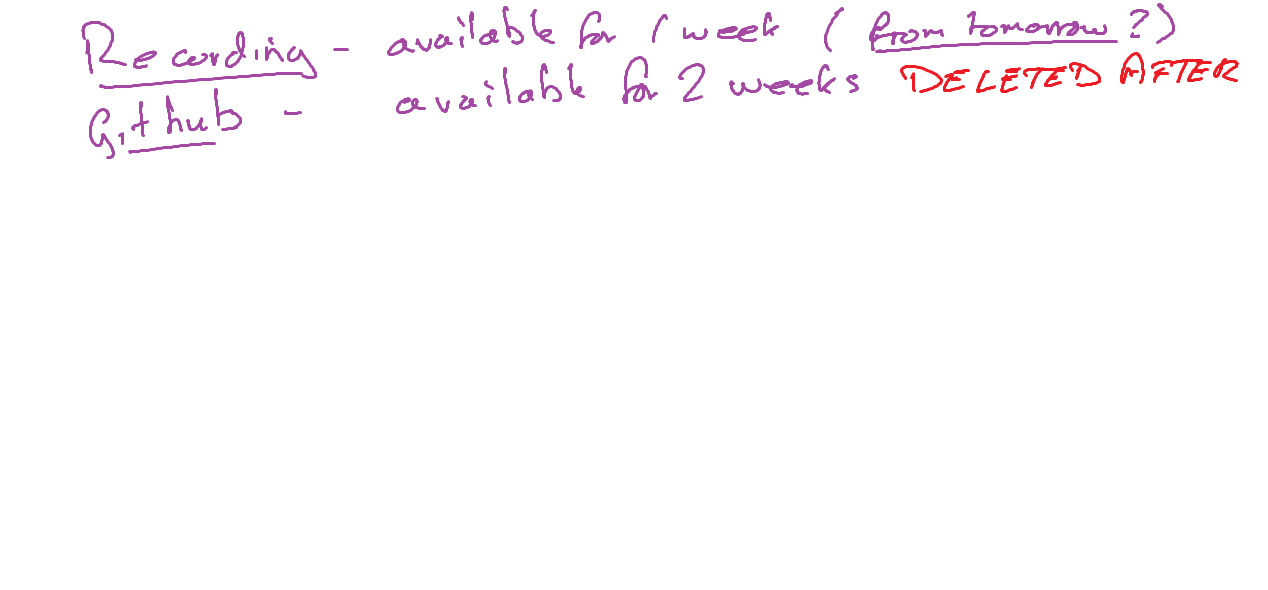 Recording - available for 1 week (from tomorrow?)
Github - available for 2 weeks DELETED AFTER